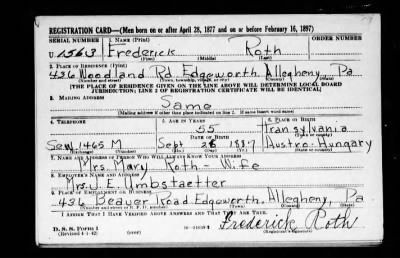 REGISTRATION CARD—(Men born on or after April 28, 1877 and on or before February 16, 1897)
SERIAL NUMBER 1. NAME (Print) ORDER NUMBER
U 1563 Frederick Roth
(First) (Middle) (Last)
2. PLACE OF RESIDENCE (Print)
436 Woodland Rd. Edgeworth. Allegheny Pa
(Number and street) (Town, township, village, or city) (County) (State)
[THE PLACE OF RESIDENCE GIVEN ON THE LINE ABOVE WILL DETERMINE LOCAL BOARD
JURISDICTION; LINE 2 OF REGISTRATION CERTIFICATE WILL BE IDENTICAL]
3. MAILING ADDRESS
Same
(Mailing address if other than place indicated on line 2. If same insert word same)
4. TELEPHONE 5. AGE IN YEARS 6. PLACE OF BIRTH
55 Transylvania
DATE OF BIRTH (Town or county)
Sew. 1465 M Sept 28 Austro-Hungary
(Exchange) (Number) (Mo.) (Day) (Yr.) (State or country)
7. NAME AND ADDRESS OF PERSON WHO WILL ALWAYS KNOW YOUR ADDRESS
Mrs. Mary Roth - Wife
8. EMPLOYER'S NAME AND ADDRESS
Mrs. J. E. Umbstaetter
9. PLACE OF EMPLOYMENT OR BUSINESS
436 Beaver Road. Edgeworth. Allegheny, Pa
(Number and street or R. F. D. number) (Town) (County) (State)
I AFFIRM THAT I HAVE VERIFIED ABOVE ANSWERS AND THAT THEY ARE TRUE.
D. S. S. Form 1
(Revised 4-1-42) (over) Frederick Roth
(Registrant's signature)